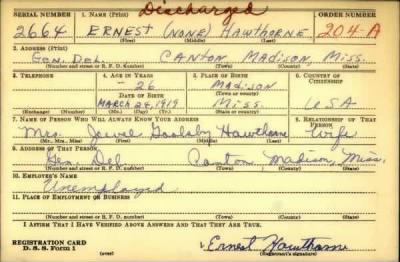 Discharged
SERIAL NUMBER 1. NAME (Print) ORDER NUMBER
2664 ERNEST (NONE) HAWTHORNE 204-A
(First) (Middle) (Last)
2. ADDRESS (Print)
Gen. Del. CANTON MADISON, MISS.
(Number and street or R. F. D. number) (Town) (County) (State)
3. TELEPHONE 4. AGE IN YEARS 5. PLACE OF BIRTH 6. COUNTRY OF CITIZENSHIP
26 MADISON
DATE OF BIRTH (Town or county)
MARCH 28, 1919 MISS. USA
(Exchange) (Number) (Mo.) (Day) (Yr.) (State or country)
7. NAME OF PERSON WHO WILL ALWAYS KNOW YOUR ADDRESS 8. RELATIONSHIP OF THAT PERSON
Mrs. Jewel Goolsby Hawthorne Wife
(Mr., Mrs., Miss) (First) (Middle) (Last)
9. ADDRESS OF THAT PERSON
Gen. Del Canton Madison, Miss.
(Number and street or R. F. D. number) (Town) (County) (State)
10. EMPLOYER'S NAME
Unemployed
11. PLACE OF EMPLOYMENT OR BUSINESS
(Number and street or R. F. D. number) (Town) (County) (State)
I AFFIRM THAT I HAVE VERIFIED ABOVE ANSWERS AND THAT THEY ARE TRUE.
REGISTRATION CARD
D. S. S. Form 1 (over) Ernest Hawthorne
(Registrant's signature)